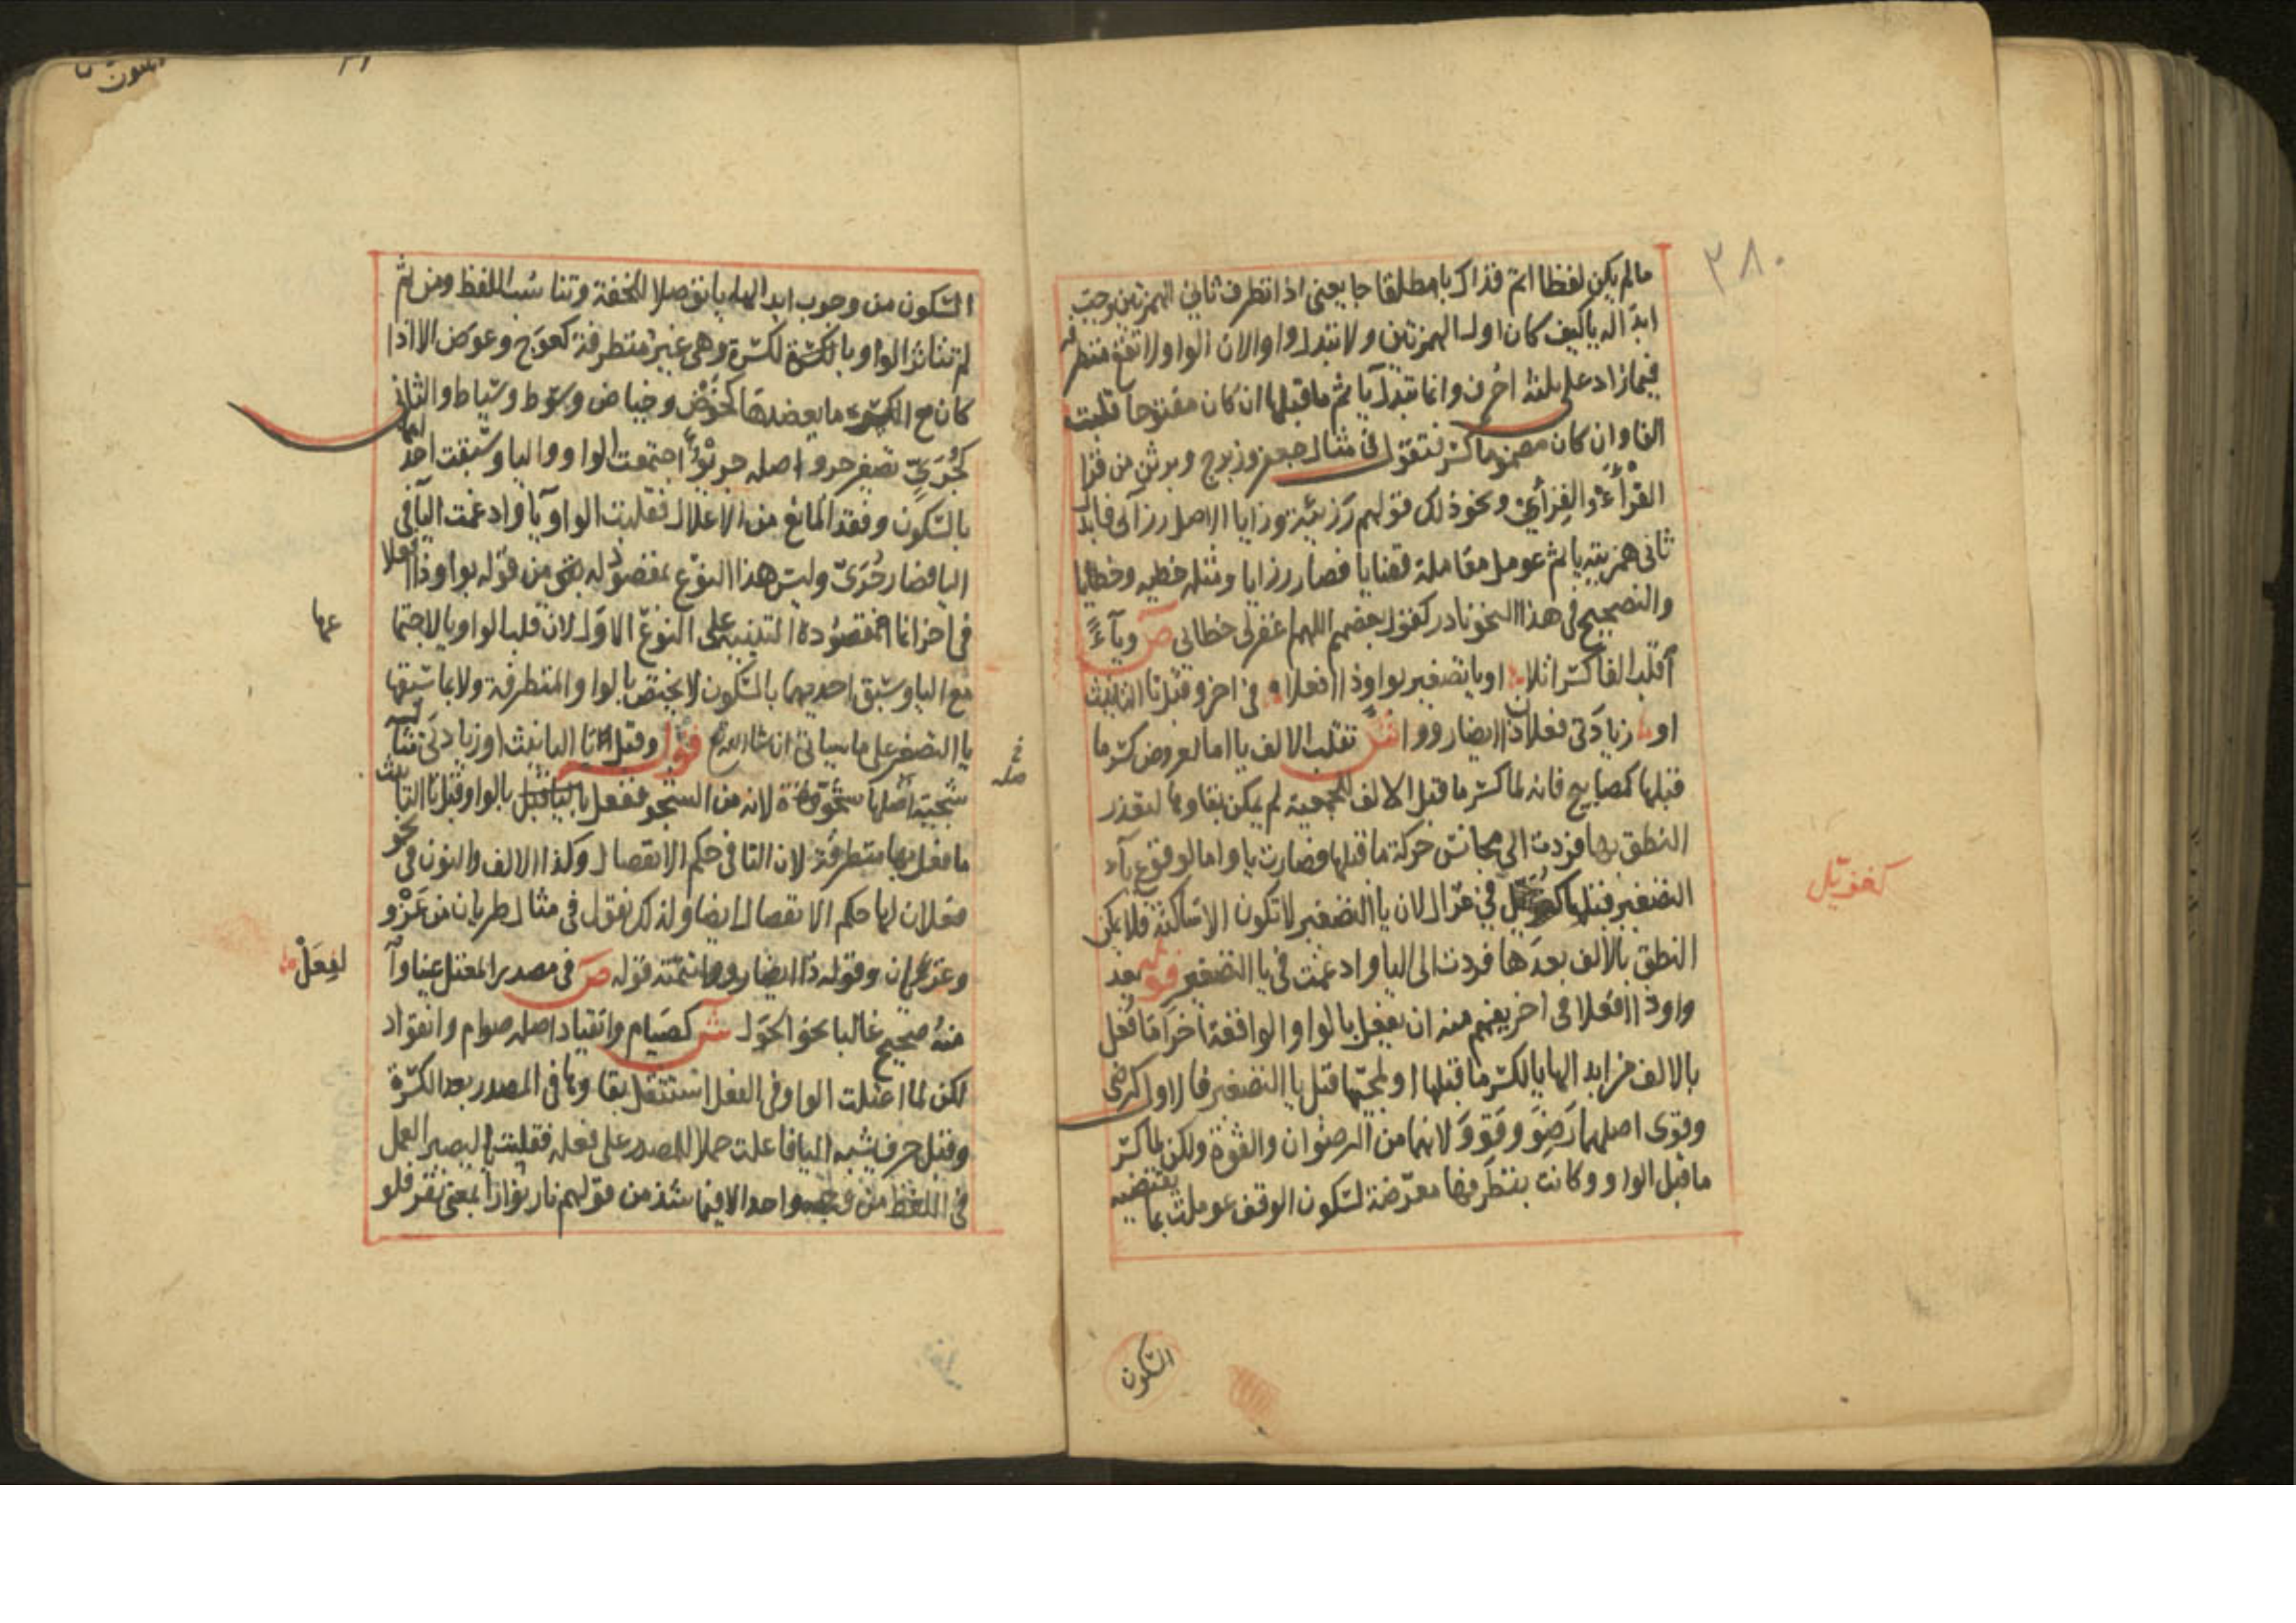 ٣٨٠
مالم يكن لفظا اتم فذاك يا مطلقا جا يعنى اذا تطرف ثانى الهمزتين وجب
ابداله يا كيف كان اول الهمزتين ولا تبدل واوا لان الواو لا تقع متطرفة
فيما زاد على ثلثة احرف وانما تبدل يا ثم ما قبلها ان كان مفتوحا قلبت
الفا وان كان مضموما كسر فتقول فى مثال جعفر وزبرج وبرثن من قرا
القرْأَءْ والقرأئ ونحو ذلك قولهم رزيئة ورزايا الاصل رزآئ فابدل
ثانى همزتيه يا ثم عومل معاملة قضايا فصار رزايا ومثله خطيه وخطايا
والتصحيح فى هذا النحو نادر كقول بعضهم اللهم اغفرلى خطائى ص وياءً
اقلب الفا كسرا تلا او يا تصغير بواو ذا افعلا فى اخر و قبل تا التانيث
او زيادتى فعلان ذا ايضا رووا ش تقلب الالف يا اما لعروض كسر ما
قبلها كمصابيح فانه لما كسر ما قبل الالف للجمعية لم يمكن بقاوها لتعذر
النطق بها فردت الى مجانس حركة ما قبلها فصارت يا واما لوقوع يآء
التصغير قبلها فى غزال لان يا التصغير لا تكون الا ساكنة فلا يمكن
النطق بالالف بعدها فردت الى اليا وادغمت فى يا التصغير قوله بعد
واو ذا افعلا فى اخر يفهم منه ان يفعل بالواو الواقعة اخرا ما فعل
بالالف من ابدالها يا لكسر ما قبلها او لمجيئها قبل يا التصغير فالاول كرضى
وقوى اصلهما رَضِوَ وقَوِوَ لانهما من الرضوان والقوة ولكن لما كسر
ما قبل الواو وكانت بتطرفها معرّضة لسكون الوقف عوملت بما يقتضيه
السكون
السكون من وجوب ابدالها يا توصلا للخفة وتناسب اللفظ ومن ثم
لم تتاثر الواو بالكسرة وهى غير متطرفة كعوج وعوض الا اذا
كان مع الكسرة ما يعضدها كحوض وحياض وسوط وسياط والثانى
كجُرَىّ تصغير جرو اصله جريوٌ اجتمعت الواو واليا وسبقت احدٰ
بهما
بالسكون وفقد المانع من الاعلال فقلبت الواو يا وادغمت اليا فى
اليا فصار جُرَىّ وليس هذا النوع بمقصود له بقى من قوله بواو ذا افعلا
فى اخر انما مقصوده التنبيه على النوع الاول لان قلب الواو يا لاجتما
عها
مع اليا وسبق احديهما بالسكون لا يختص بالواو المتطرفة ولا بما سبقها
يا التصغير على ما سياتى ان شا الله قوله وقبل تا التانيث او زيادتى
شجية اصلها شجوة لانه من الشجو ففعل بالواو قبل تا التانيث
ما فعل بها متطرفة لان التا فى حكم الانفصال وكذا الالف والنون فى نحو
فعلان لها حكم الانفصال ايضا ولذلك نقول فى مثال ظربان من غَزْو
وقوله ذا ايضا رووا تتمته قوله ص فى مصدر المعتل عينا وا
منهُ صحيح غالبا نحو الحول ش كصيام وانقياد اصله صوام وانقواد
لكن لما اعتلت الواو فى الفعل استثقل بقاوها فى المصدر بعد الكسرة
وقبل حرف يشبه اليا فاعلت حملا للمصدر على فعله فقلبت يا ليصير العمل
فى اللفظ من وجه واحد الا فيما شذ من قولهم نار نوارا بمعنى نفر فلو